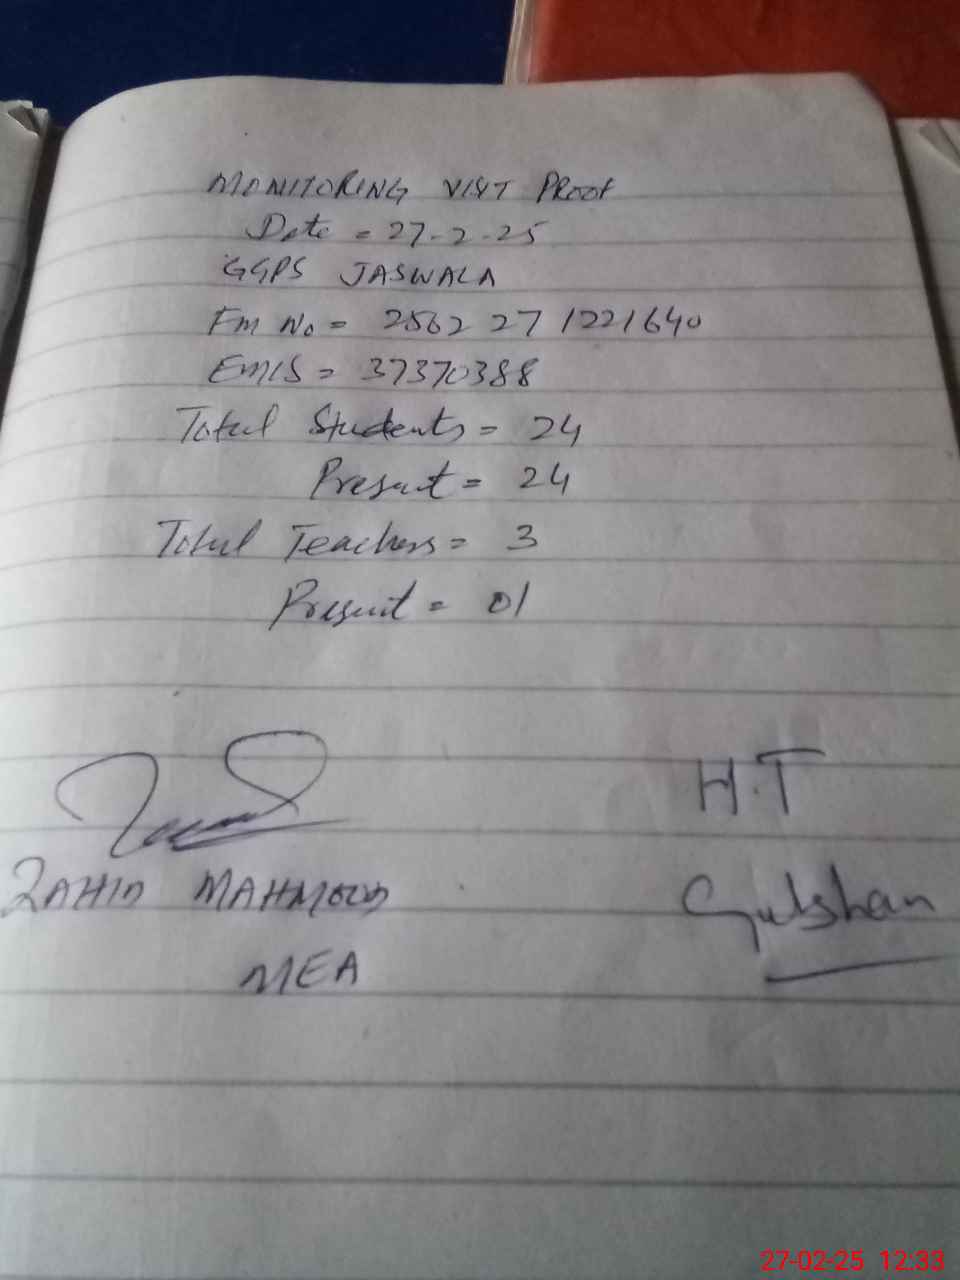 MONITORING VISIT PROOF
Date = 27-2-25
GGPS JASWALA
Fm No = 2562 27 1221640
EMIS = 37370388
Total Students = 24
Present = 24
Total Teachers = 3
Present = 01
H.T
ZAHID MAHMOOD
Gulshan
MEA
27-02-25 12:33